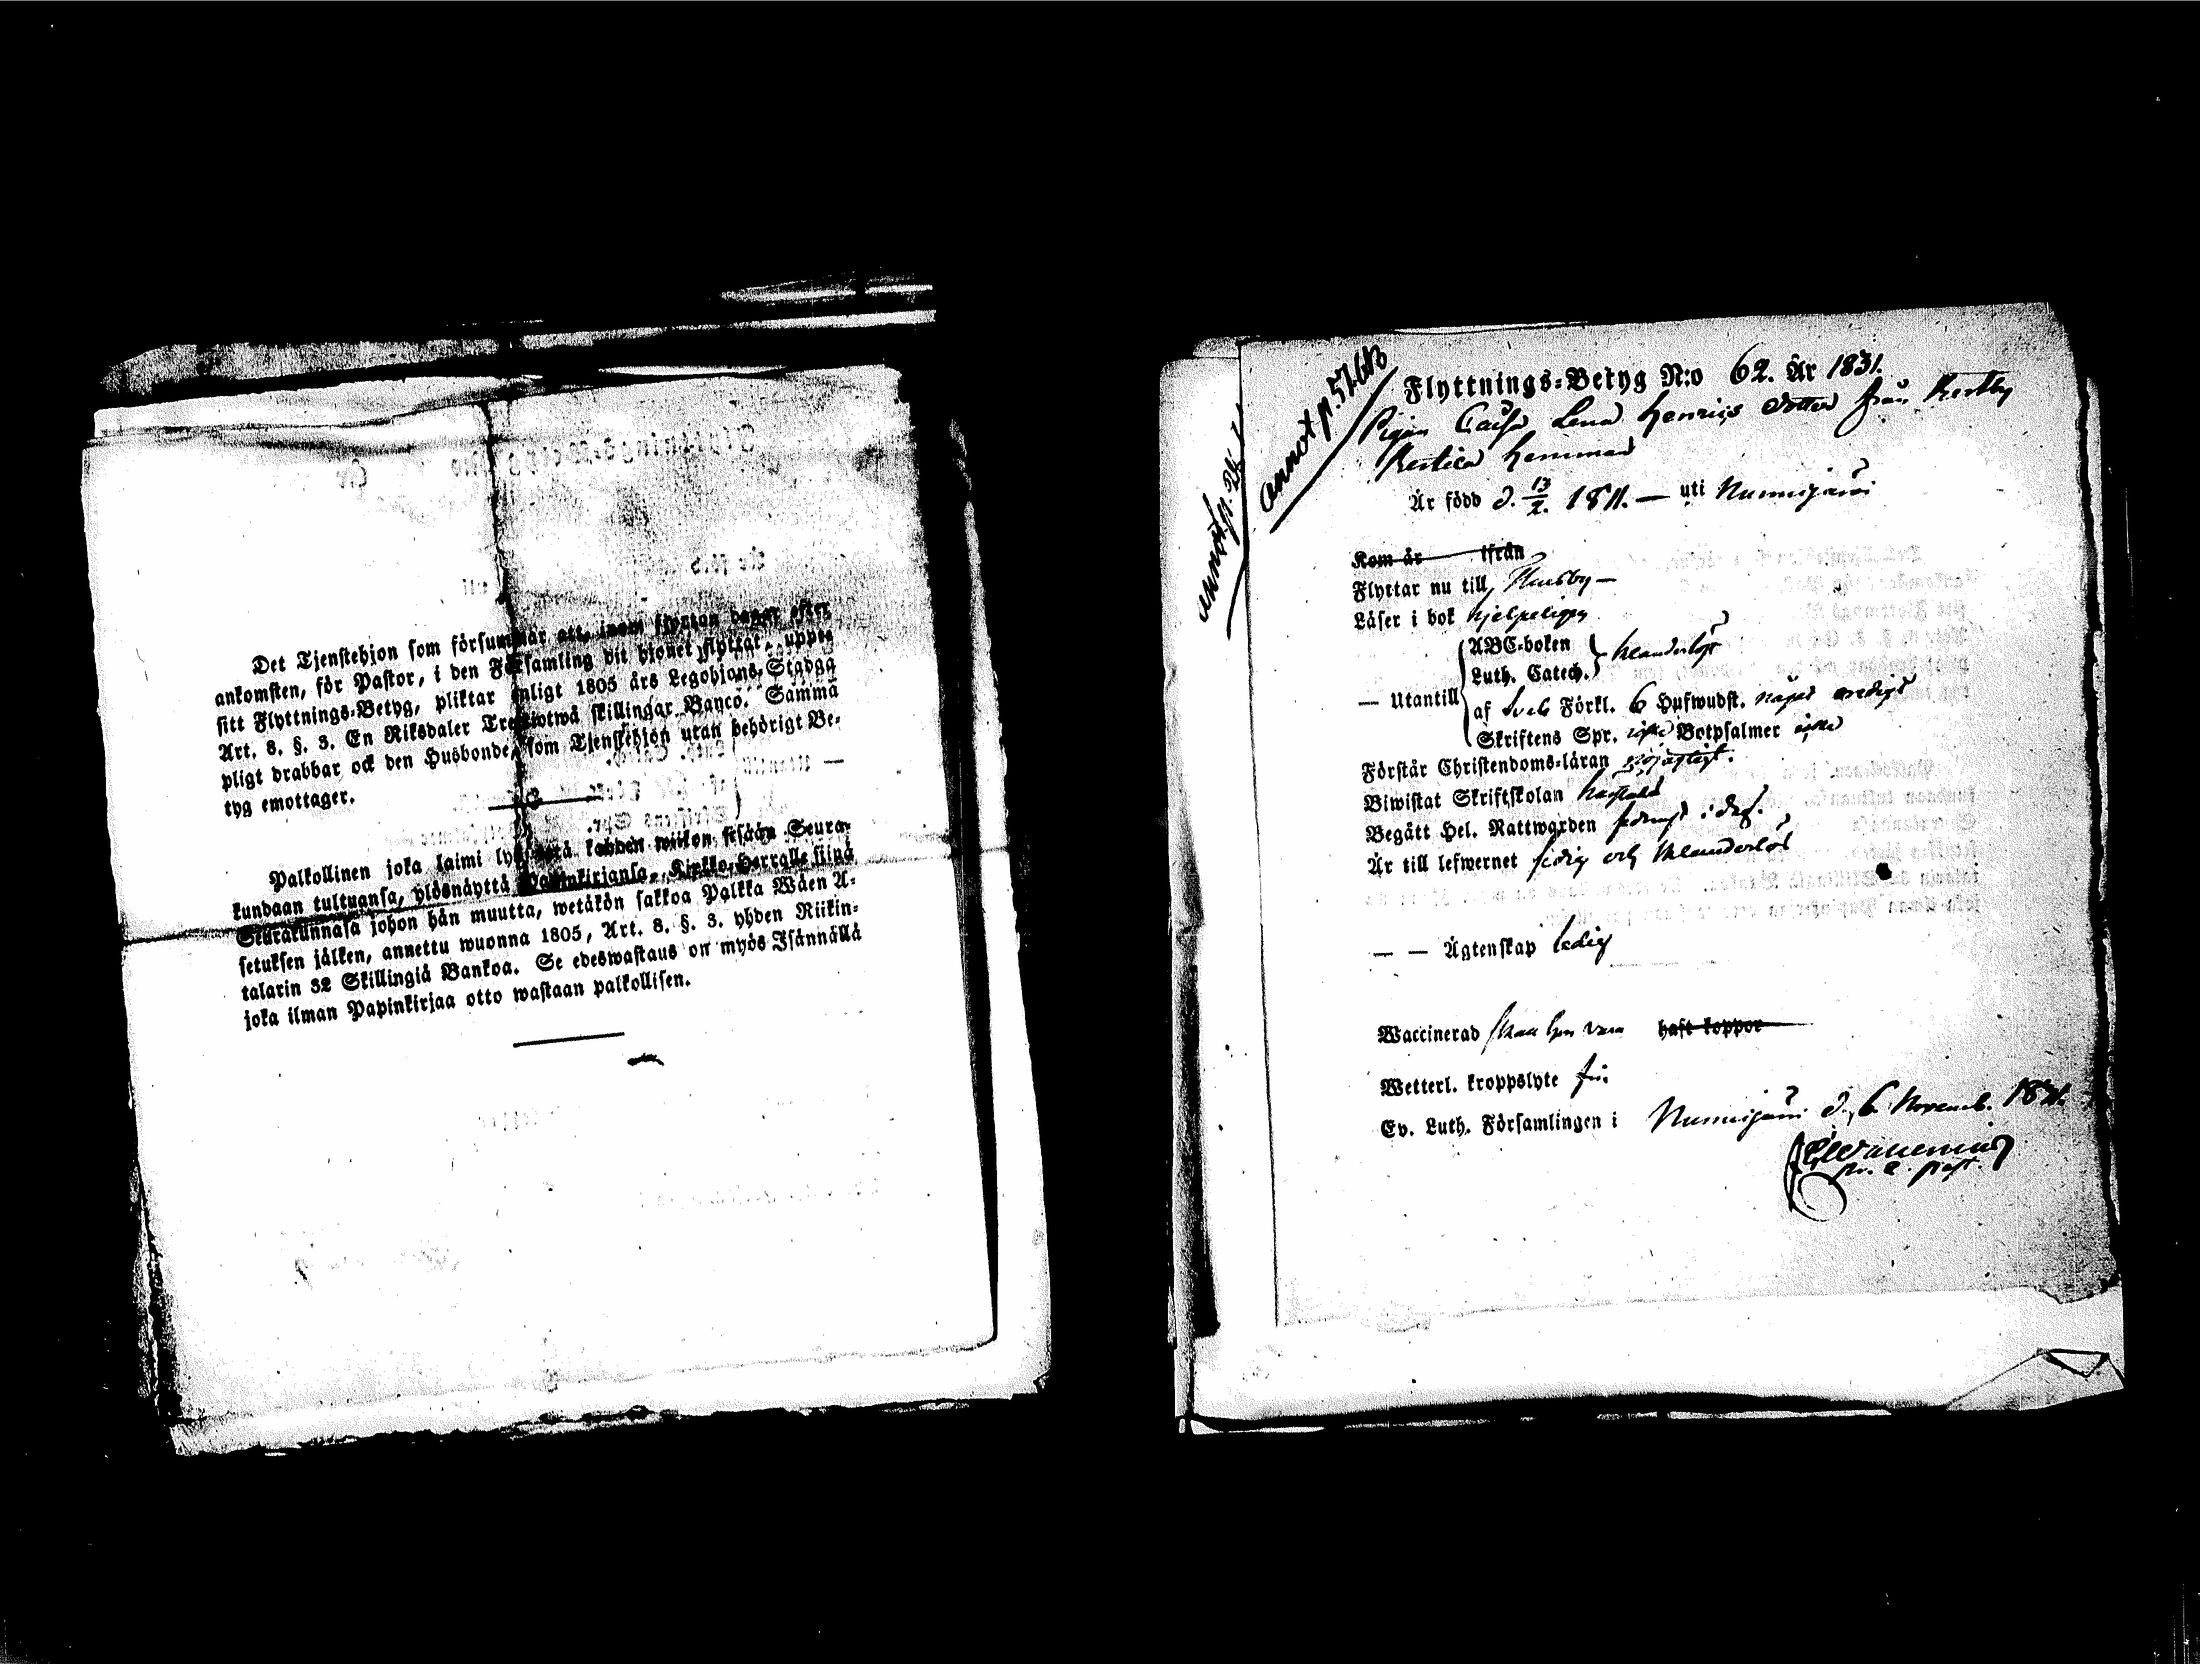 Det Tjenstehjon som försummar att, inom fjorton dagar efter
ankomsten, för Pastor, i den Församling dit hjonet flyttat, uppte
sitt Flyttnings-Betyg, pliktar enligt 1805 års Legohjons-Stadga
Art. 8. §. 3. En Riksdaler Trettiotwå skillingar Banco. Samma
pligt drabbar ock den Husbonde, som Tjenstehjon utan behörigt Be-
tyg emottager.
Palkollinen joka laimi kahden wiikon sisään Seura-
kundaan tultuansa, ylösnäyttä Papinkirjansa, Kirkko-Herralle siinä
Seurakunnasa johon hän muutta, wetäkön sakkoa Palkka Wäen A-
setuksen jälken, annettu wuonna 1805, Art. 8. §. 3. yhden Riikin-
talarin 32 Skillingiä Bankoa. Se edeswastaus on myös Isännällä
joka ilman Papinkirjaa otto wastaan palkollisen.
annot. p.
annot p. 57
Flyttnings-Betyg N:o 62. År 1831.
Pigan Caisa Lena Henrics dotter från
hemman
Är född d. 13/2. 1811. — uti Nummijärvi
Kom år ifrån
Flyttar nu till Thusby —
Läser i bok hjelpeligen
ABC-boken
Luth. Catech. klanderlöst
— Utantill
af Sveb Förkl. 6 Hufwudst. något oredigt
Skriftens Spr. icke Botpsalmer icke
Förstår Christendoms-läran nöjagtigt.
Biwistat Skriftskolan
Begått Hel. Nattwarden
Är till lefwernet sedig och klanderlös
— — Ägtenskap ledig
Waccinerad skall hon vara haft koppor
Wetterl. kroppslyte fri
Ev. Luth. Församlingen i d. 6. Novemb. 1831.
past.